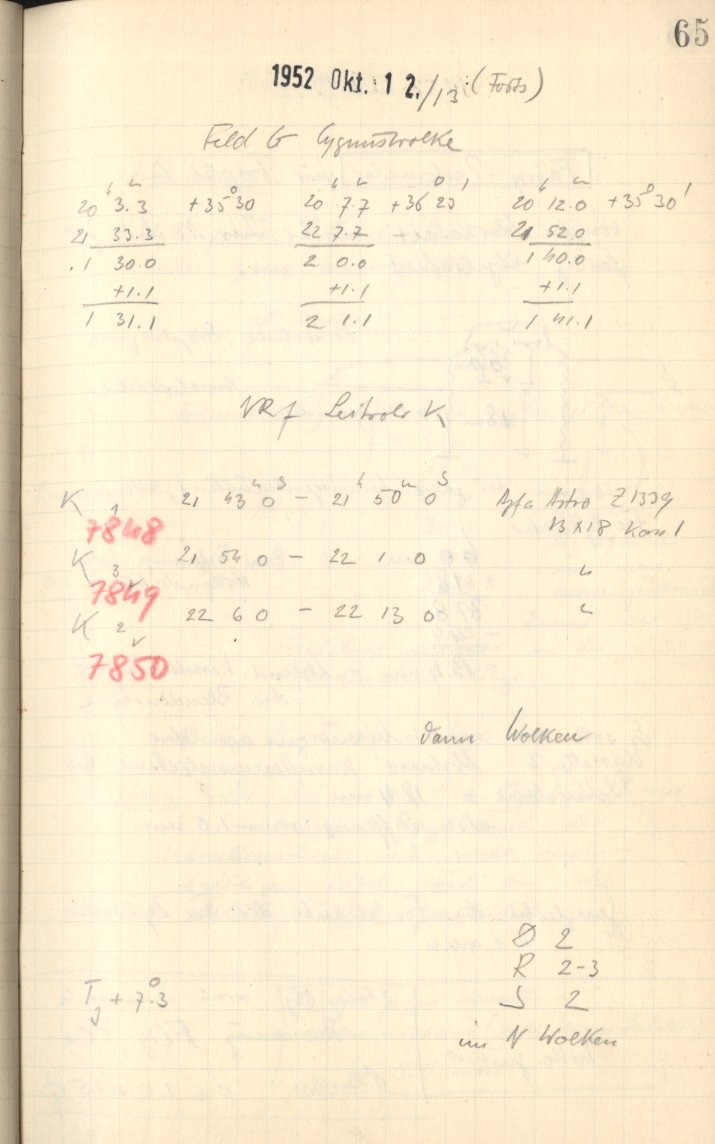 65
1952 Okt. 12./13. (Forts)
Feld G Cygnuswolke
20 h 3.3 m +35° 30 20 h 7.7 m +36° 20' 20 h 12.0 m +35° 30'
21 33.3 22 7.7 21 52.0
1 30.0 2 0.0 1 40.0
+1.1 +1.1 +1.1
1 31.1 2 1.1 1 41.1
Leitrohr K
K 1 21 43 m 0 s – 21 h 50 m 0 s Agfa Astro Z 1339
7848 13 x 18
K 3 21 54 0 – 22 1 0 "
7849
K 2 22 6 0 – 22 13 0 "
7850
dann Wolken
Ø 2
R 2-3
T + 7°.3 S 2
im N Wolken